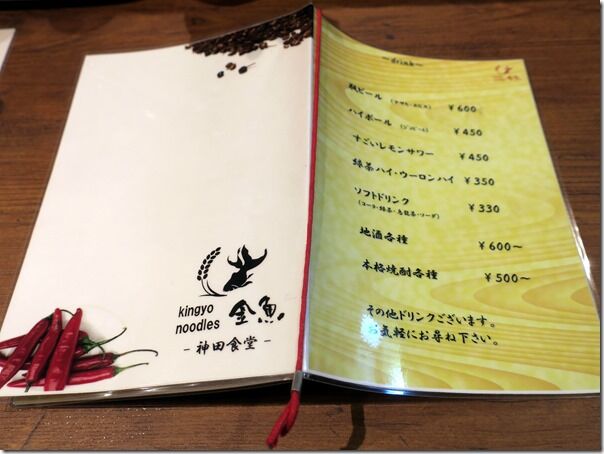 kingyo
noodles
金魚
- 神田食堂 -
~drink~
瓶ビール
¥600
ハイボール
¥450
すごいレモンサワー ¥450
緑茶ハイ・ウーロンハイ ¥350
ソフトドリンク ¥330
(コーラ・緑茶・烏龍茶・ソーダ)
地酒各種 ¥600~
本格焼酎各種 ¥500~
その他ドリンクございます。
お気軽にお尋ね下さい。